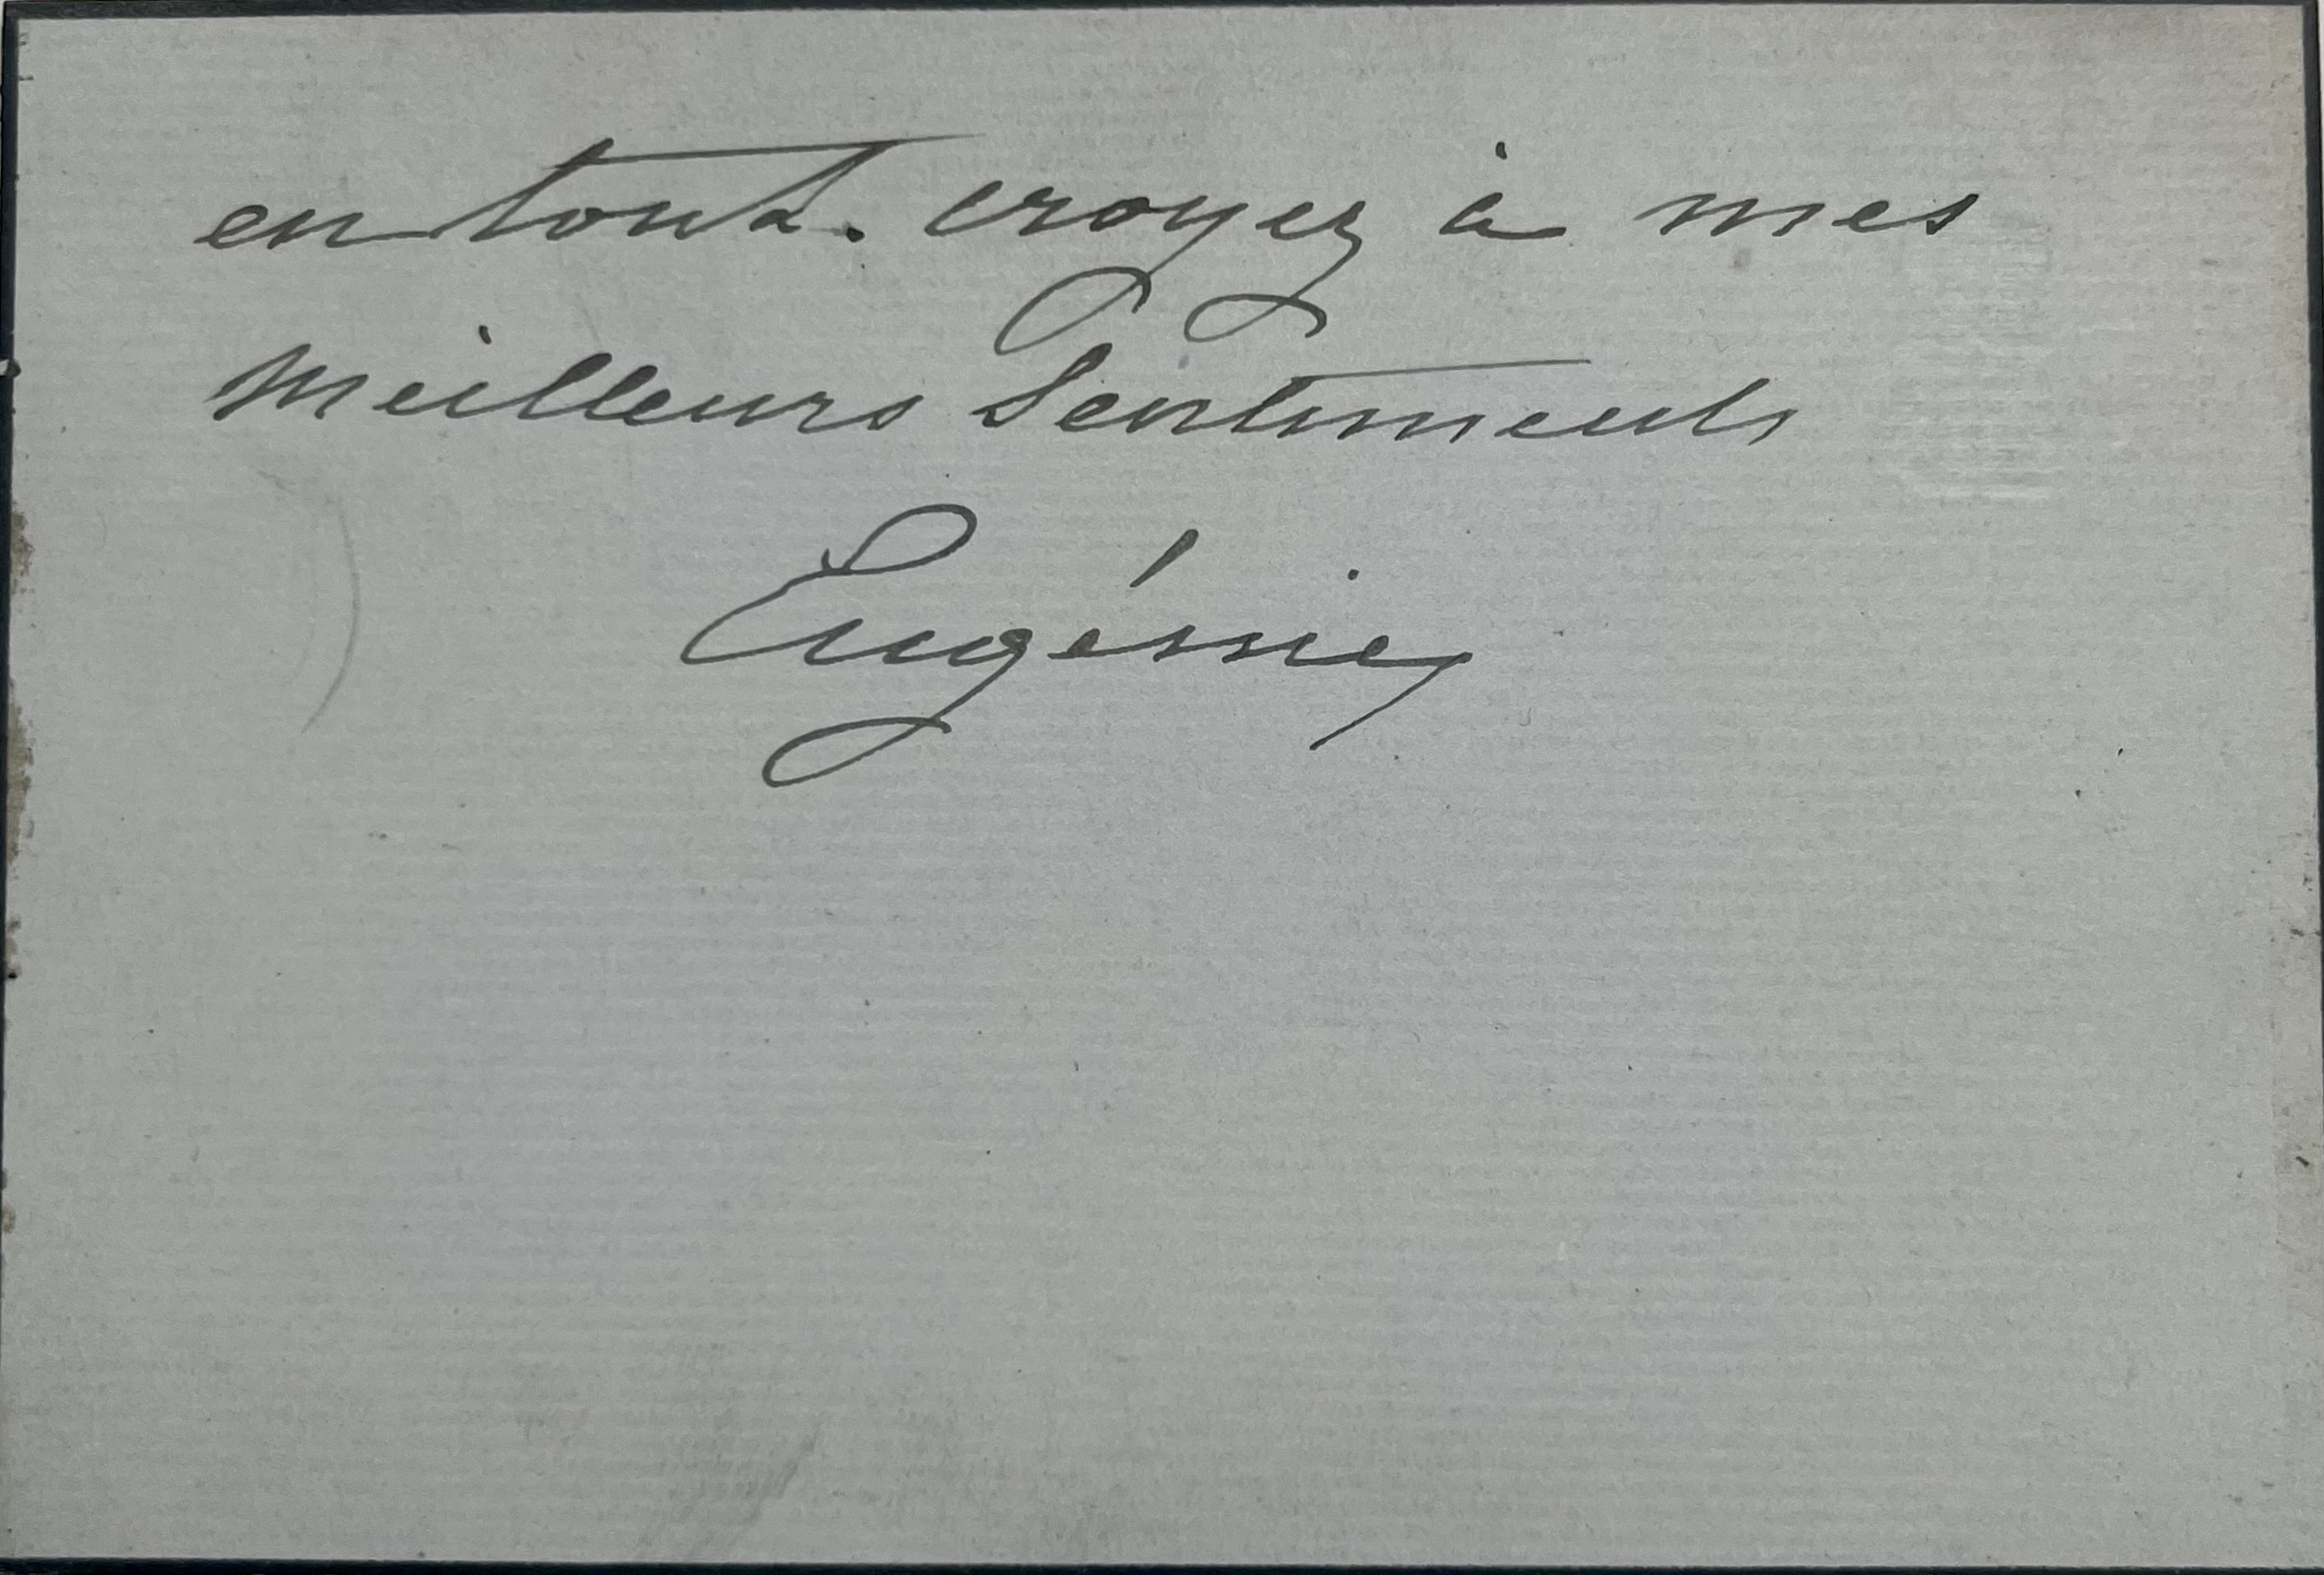 en tout. croyez à mes
meilleurs Sentiments
Eugénie